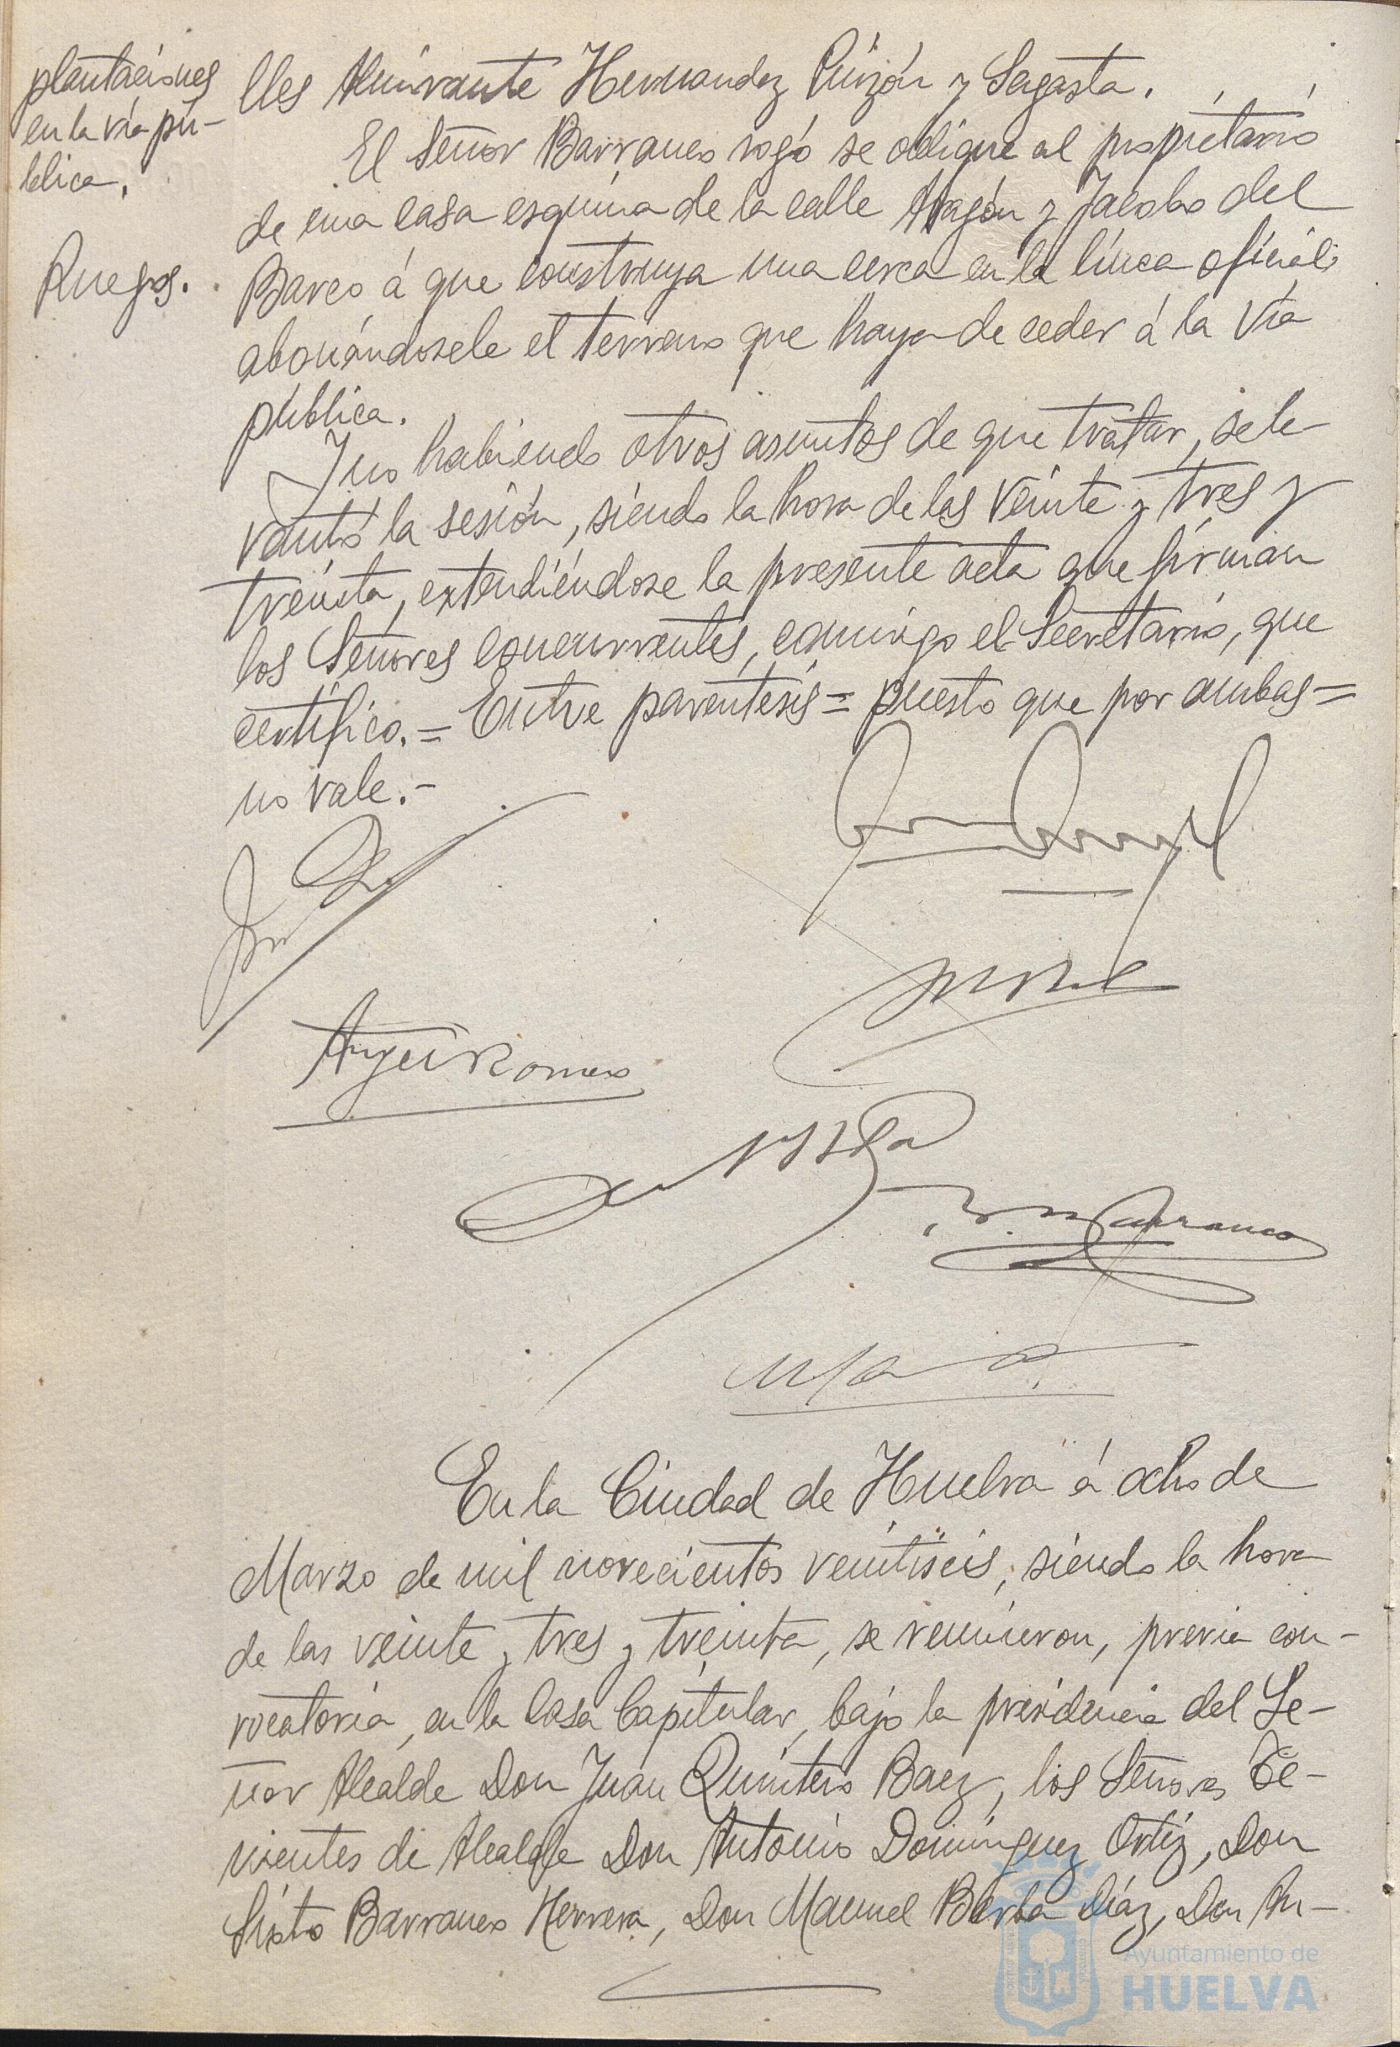 plantaciones
en la vía pú-
blica.
Ruegos.
lles Almirante Hernandez Pinzón y Sagasta.
El Señor Barranco rogó se oblique al propietario
de una casa esquina de la calle Aragón y Jacobo del
Barco á que construya una cerca en la línea oficial;
abonándosele el terreno que haya de ceder á la vía
pública.
Y no habiendo otros asuntos de que tratar, se le-
vantó la sesión, siendo la hora de las veinte y tres y
treinta, extendiéndose la presente acta que firman
los Señores concurrentes, conmigo el Secretario, que
certifico. = Entre paréntesis = puesto que por ambas =
no vale.-
Angel Romero
Barranco
En la Ciudad de Huelva á ocho de
Marzo de mil novecientos veintiseis, siendo la hora
de las veinte y tres y treinta, se reunieron, previa con-
vocatoria, en la Casa Capitular, bajo la presidencia del Se-
ñor Alcalde Don Juan Quintero Baez, los Señores Te-
nientes de Alcalde Don Antonio Domínguez Ortiz, Don
Sixto Barranco Herrera, Don Manuel Barba Díaz, Don An-
Ayuntamiento de
HUELVA